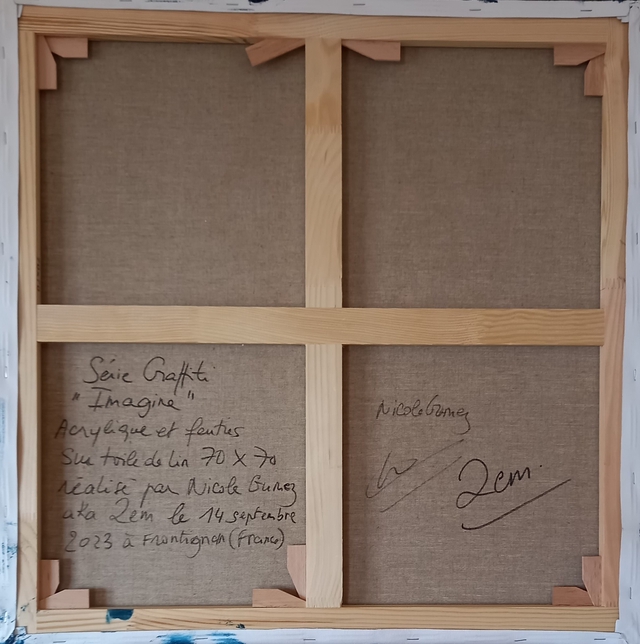 Série Graffiti
"Imagine"
Acrylique et feutres
Sur toile de lin 70 X 70
réalisé par Nicole Gumez
aka 2em le 14 septembre
2023 à Frontignan (France)
Nicole Gumez
2em.